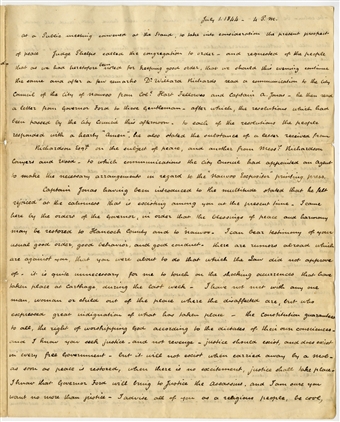 July 1. 1844 - 4 P.M.
At a Public meeting convened at the Stand, to take into consideration the present prospect
of peace Judge Phelps called the congregation to order - and requested of the people
that as we had heretofore been noted for keeping good order, that we should this evening continue
the same and after a few remarks Dr. Willard Richards read a communication to the City
Council of the City of Nauvoo from Colo. Hart Fellows and Captain A Jonas - he then read
a letter from Governor Ford to those Gentlemen - after which, the resolutions which had
been passed by the City Council this afternoon. to each of the resolutions the people
responded with a hearty "Amen", he also stated the substance of a letter received from
Richardson Esqr. on the subject of peace, and another from Messrs. Richardson
Lawyers and Wood. to which communications the City Council had appointed an Agent
to make the necessary arrangements in regard to the Nauvoo Expositor printing press.
Captain Jonas having been introduced to the multitude stated that he felt
rejoiced at the calmness that is existing among you at the present time. I came
here by the orders of the Governor, in order that the blessings of peace and harmony
may be restored to Hancock County and to Nauvoo. I can bear testimony of your
usual good order, good behavior, and good conduct. there are rumors abroad which
are against you, that you were about to do that which the Law did not approve
of. it is quite unnecessary for me to touch on the shocking occurrences that have
taken place at Carthage during the last week. I have not met with any one
man, woman or child out of the place where the disaffected are, but who
expressed great indignation of what has taken place - the Constitution guarantees
to all, the right of worshipping God according to the dictates of their own consciences.
and I know you seek justice, and not revenge - justice should exist, and does exist
in every free Government - but it will not exist when carried away by a mob.
as soon as peace is restored, when there is no excitement, justice shall take place.
I know that Governor Ford will bring to Justice the Assassins, and I am sure you
want no more than justice - I advise all of you as a religious people, be cool,